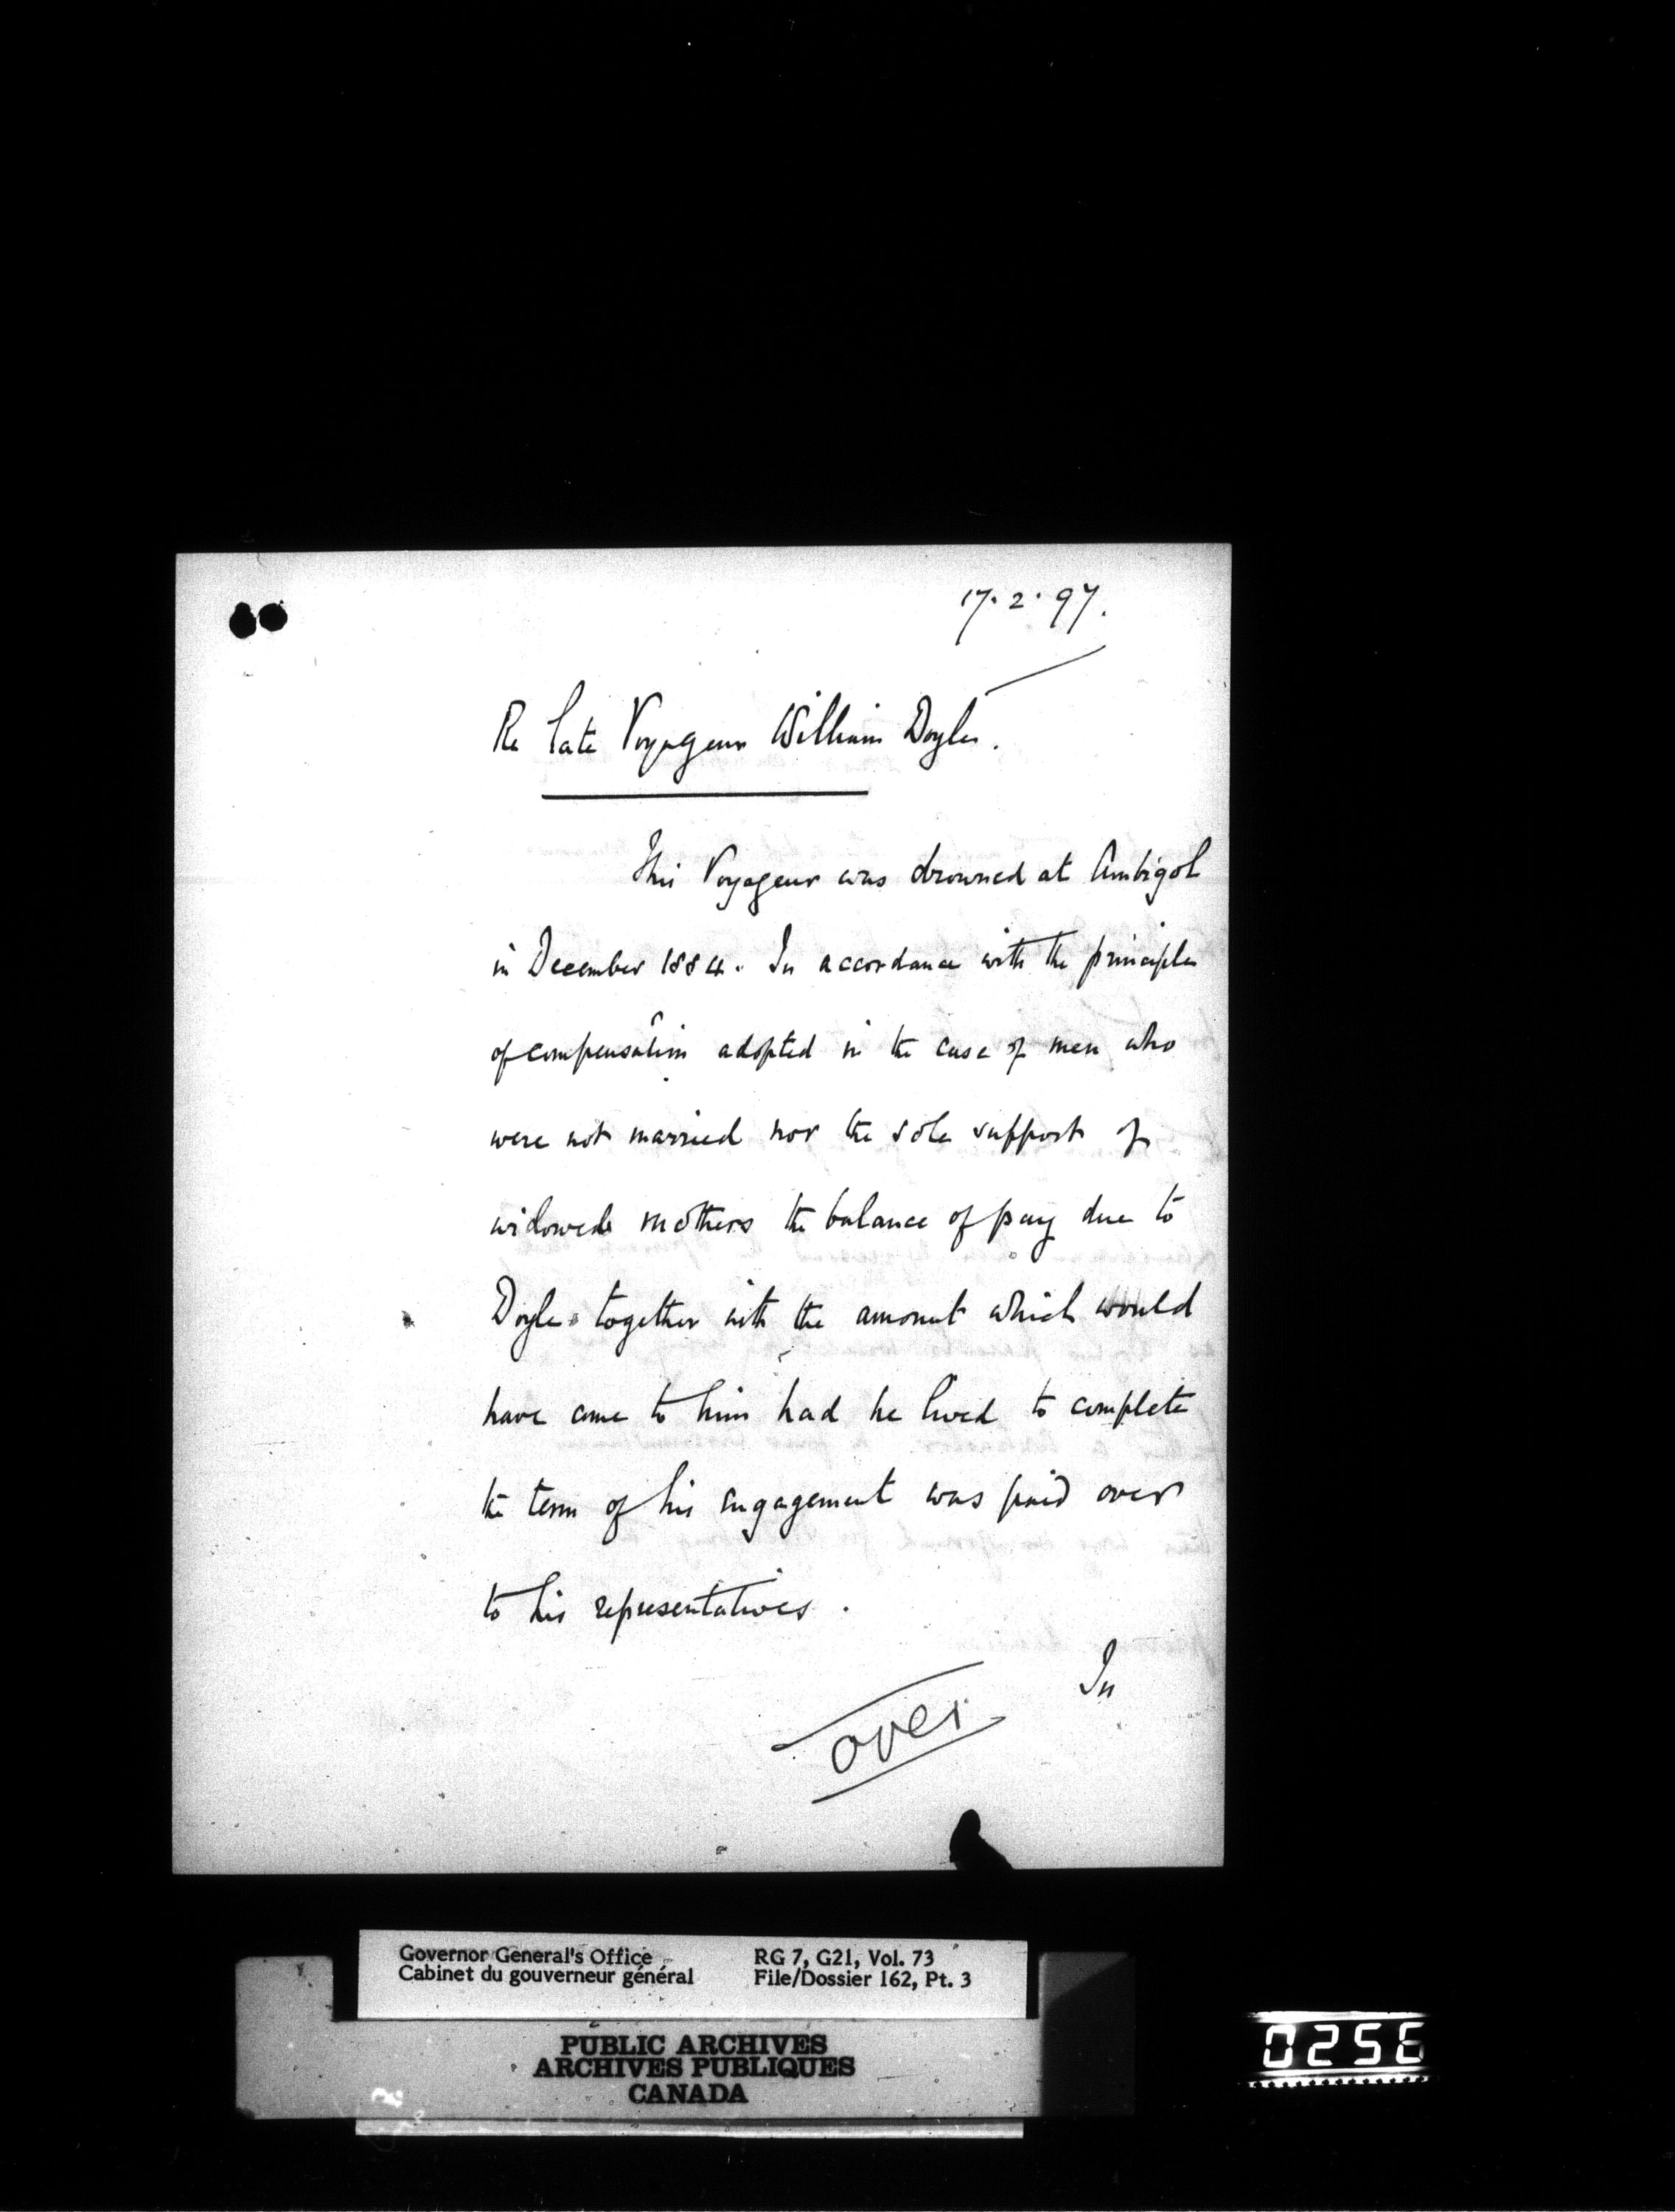 17.2.97.
Re late Voyageur William Doyle.
This Voyageur was drowned at Ambigol
in December 1884. In accordance with the principle
of compensation adopted in the case of men who
were not married nor the sole support of
widowed mothers the balance of pay due to
Doyle together with the amount which would
have come to him had he lived to complete
the term of his engagement was paid over
to his representatives.
In
over
Governor General's Office RG 7, G21, Vol. 73
Cabinet du gouverneur général File/Dossier 162, Pt. 3
PUBLIC ARCHIVES
ARCHIVES PUBLIQUES
CANADA